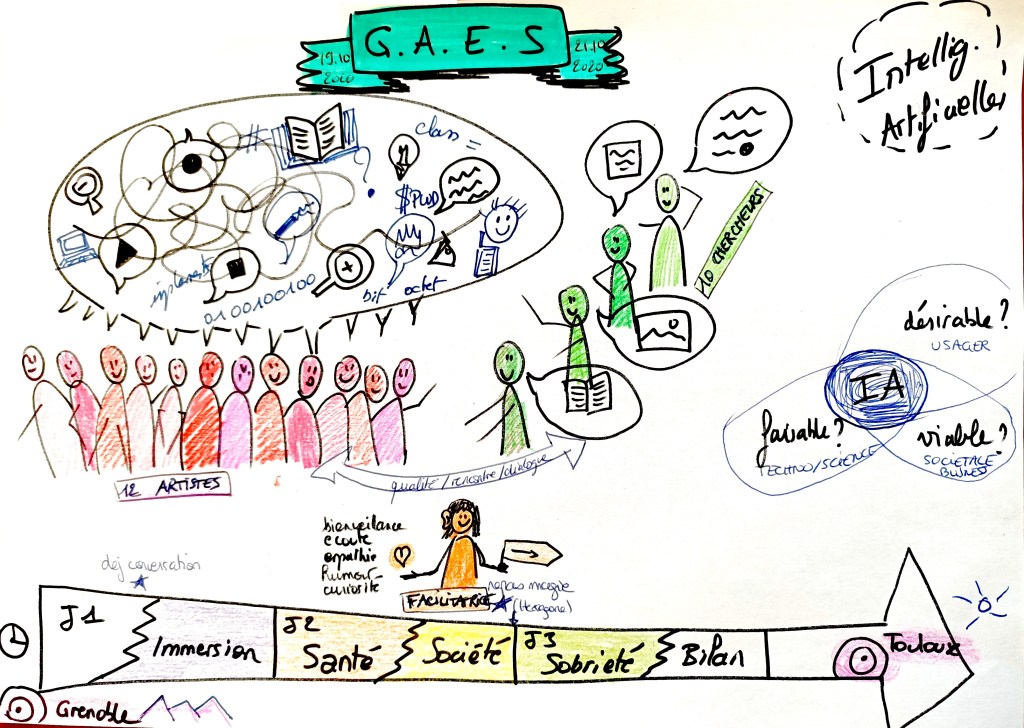 G.A.E.S
19.10
2020
21.10
2020
Intellig.
Artificielle
#
?
class =
$PWD
implements
010010100
bit octet
10 CHERCHEURS
12 ARTISTES
qualité/rencontre/dialogue
désirable?
USAGER
IA
faisable?
TECHNO/SCIENCE
viable?
SOCIETALE
bienveillance
écoute
empathie
Humour
curiosité
FACILITATRICE
repas
(Hexagone)
déj conversation
J1
Immersion
J2
Santé
Société
J3
Sobriété
Bilan
Toulouse
Grenoble